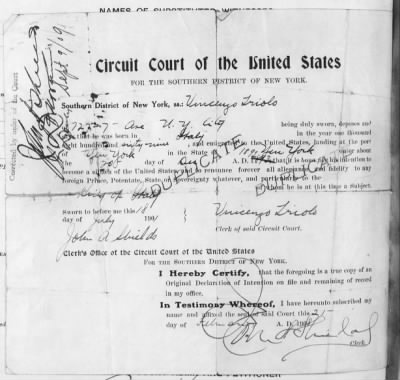 NAMES OF SUBSTITUTED WITNESSES
Circuit Court of the United States
FOR THE SOUTHERN DISTRICT OF NEW YORK.
Southern District of New York, ss.: Vincenzo Triolo
Ave N. Y. City being duly sworn, deposes and
that he was born in Italy in the year one thousand
eight hundred and sixty nine and emigrated to the United States, landing at the port
of New York in the State of New York
day of Aug A. D. that it is bona fide his intention to
become a citizen of the United States and to renounce forever all allegiance and fidelity to any
foreign Prince, Potentate, State or Sovereignty whatever, and particularly to the
King of Italy of whom he is at this time a Subject.
DUPLICATE
Sworn to before me this
day of July 190
Vincenzo Triolo
John A Shields
Clerk of said Circuit Court.
Clerk's Office of the Circuit Court of the United States
FOR THE SOUTHERN DISTRICT OF NEW YORK.
I Hereby Certify, that the foregoing is a true copy of an
Original Declaration of Intention on file and remaining of record
in my office.
In Testimony Whereof, I have hereunto subscribed my
name and affixed the seal of said Court this 25
day of February A. D. 190
John A Shields
Clerk